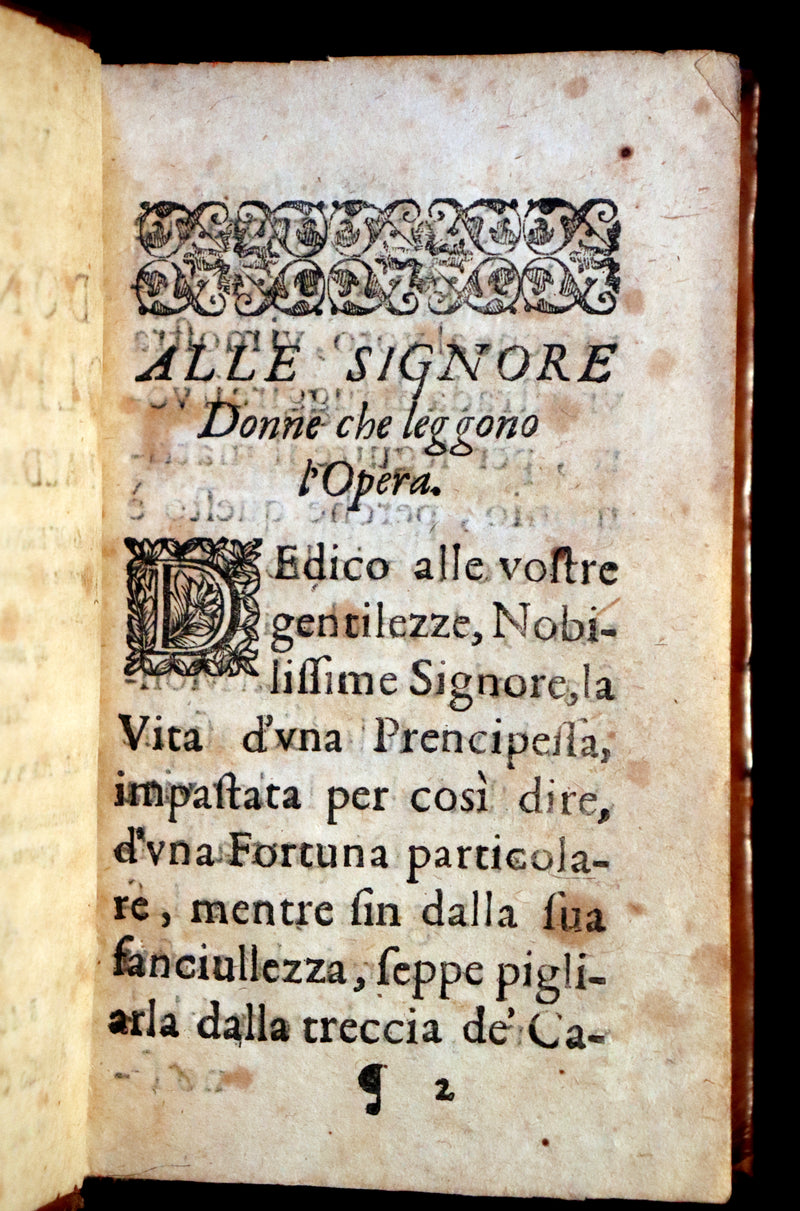 ALLE SIGNORE
Donne che leggono
l'Opera.
DEdico alle voſtre
gentilezze, Nobi-
liſſime Signore, la
Vita d'vna Prencipeſſa,
impaſtata per così dire,
d'vna Fortuna particola-
re, mentre ſin dalla ſua
fanciullezza, ſeppe pigli-
arla dalla treccia de' Ca-
¶ 2